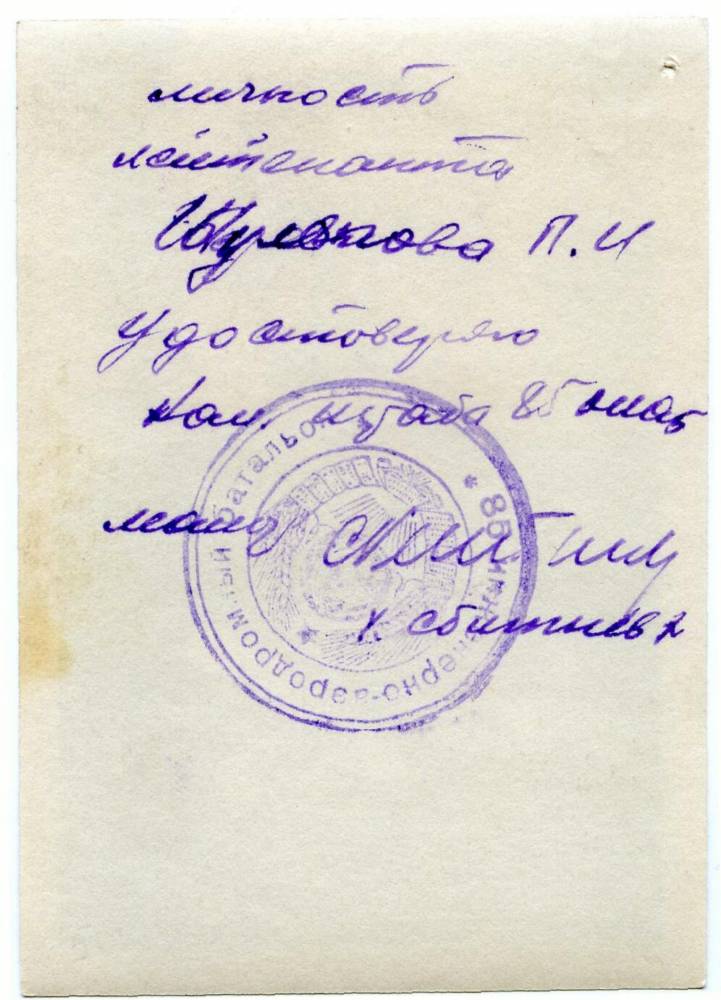 личность
лейтенанта
П. И
Удостоверяю
Нач. штаба 85 иаб
майор
/. Сбитнев /
* 85 инженерно-аэродромный батальон *